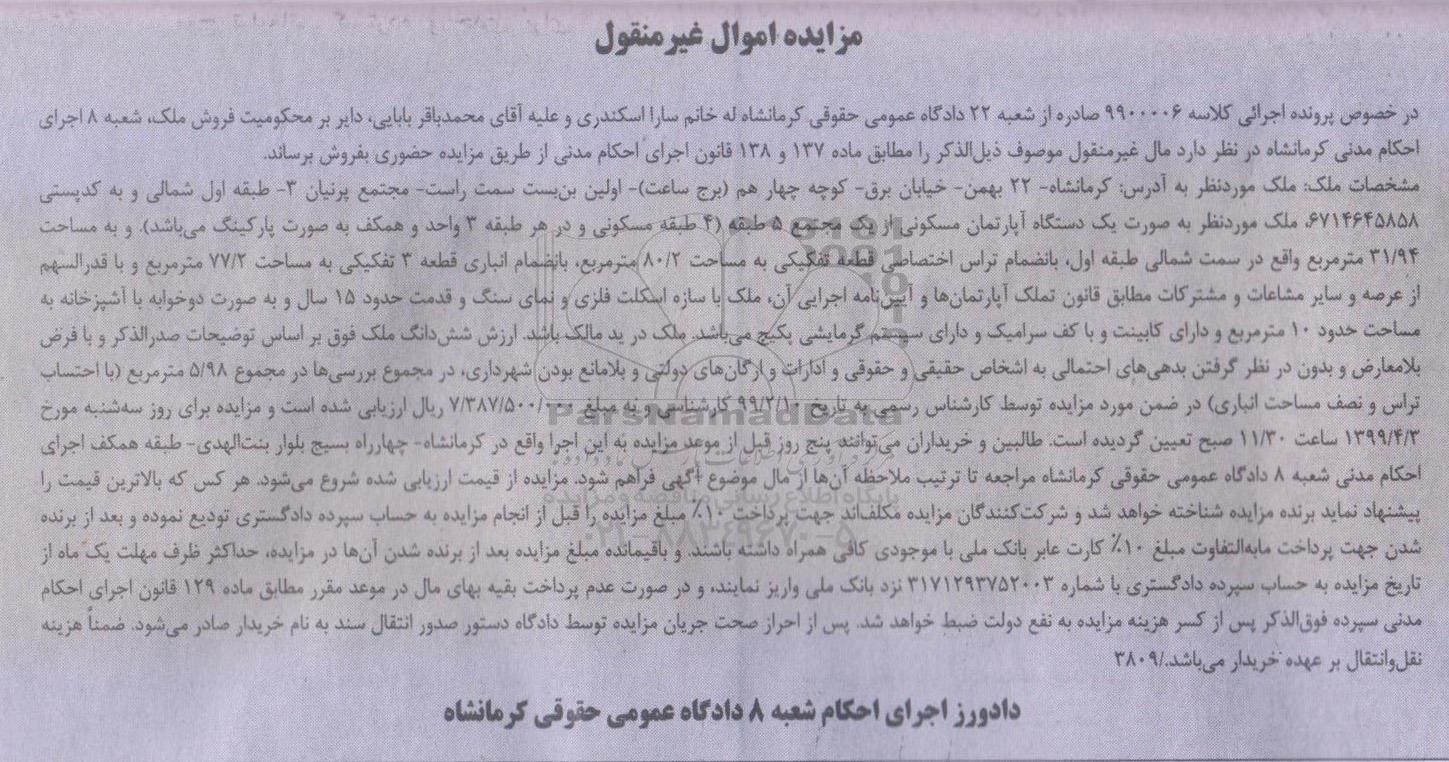 مزایده اموال غیرمنقول
در خصوص پرونده اجرائی کلاسه ۹۹۰۰۰۰۶ صادره از شعبه ۲۲ دادگاه عمومی حقوقی کرمانشاه له خانم سارا اسکندری و علیه آقای محمدباقر بابایی، دایر بر محکومیت فروش ملک، شعبه ۸ اجرای
احکام مدنی کرمانشاه در نظر دارد مال غیرمنقول موصوف ذیل‌الذکر را مطابق ماده ۱۳۷ و ۱۳۸ قانون اجرای احکام مدنی از طریق مزایده حضوری بفروش برساند.
مشخصات ملک: ملک موردنظر به آدرس: کرمانشاه- ۲۲ بهمن- خیابان برق- کوچه چهار هم (برج ساعت)- اولین بن‌بست سمت راست- مجتمع پرنیان ۳- طبقه اول شمالی و به کدپستی
۶۷۱۴۶۴۵۸۵۸، ملک موردنظر به صورت یک دستگاه آپارتمان مسکونی از یک مجتمع ۵ طبقه (۴ طبقه مسکونی و در هر طبقه ۳ واحد و همکف به صورت پارکینگ می‌باشد). و به مساحت
۳۱/۹۴ مترمربع واقع در سمت شمالی طبقه اول، بانضمام تراس اختصاصی قطعه تفکیکی به مساحت ۸۰/۲ مترمربع، بانضمام انباری قطعه ۳ تفکیکی به مساحت ۷۷/۲ مترمربع و با قدرالسهم
از عرصه و سایر مشاعات و مشترکات مطابق قانون تملک آپارتمان‌ها و آیین‌نامه اجرایی آن، ملک با سازه اسکلت فلزی و نمای سنگ و قدمت حدود ۱۵ سال و به صورت دوخوابه با آشپزخانه به
مساحت حدود ۱۰ مترمربع و دارای کابینت و با کف سرامیک و دارای سیستم گرمایشی پکیج می‌باشد. ملک در ید مالک باشد. ارزش شش‌دانگ ملک فوق بر اساس توضیحات صدرالذکر و با فرض
بلامعارض و بدون در نظر گرفتن بدهی‌های احتمالی به اشخاص حقیقی و حقوقی و ادارات و ارگان‌های دولتی و بلامانع بودن شهرداری، در مجموع بررسی‌ها در مجموع ۵/۹۸ مترمربع (با احتساب
تراس و نصف مساحت انباری) در ضمن مورد مزایده توسط کارشناس رسمی به تاریخ ۹۹/۲/۱۰ کارشناسی و به مبلغ ۷/۳۸۷/۵۰۰/۰۰۰ ریال ارزیابی شده است و مزایده برای روز سه‌شنبه مورخ
۱۳۹۹/۴/۳ ساعت ۱۱/۳۰ صبح تعیین گردیده است. طالبین و خریداران می‌توانند پنج روز قبل از موعد مزایده به این اجرا واقع در کرمانشاه- چهارراه بسیج بلوار بنت‌الهدی- طبقه همکف اجرای
احکام مدنی شعبه ۸ دادگاه عمومی حقوقی کرمانشاه مراجعه تا ترتیب ملاحظه آن‌ها از مال موضوع آگهی فراهم شود. مزایده از قیمت ارزیابی شده شروع می‌شود. هر کس که بالاترین قیمت را
پیشنهاد نماید برنده مزایده شناخته خواهد شد و شرکت‌کنندگان مزایده مکلف‌اند جهت پرداخت ۱۰٪ مبلغ مزایده را قبل از انجام مزایده به حساب سپرده دادگستری تودیع نموده و بعد از برنده
شدن جهت پرداخت مابه‌التفاوت مبلغ ۱۰٪ کارت عابر بانک ملی با موجودی کافی همراه داشته باشند. و باقیمانده مبلغ مزایده بعد از برنده شدن آن‌ها در مزایده، حداکثر ظرف مهلت یک ماه از
تاریخ مزایده به حساب سپرده دادگستری با شماره ۳۱۷۱۲۹۳۷۵۲۰۰۳ نزد بانک ملی واریز نمایند، و در صورت عدم پرداخت بقیه بهای مال در موعد مقرر مطابق ماده ۱۲۹ قانون اجرای احکام
مدنی سپرده فوق‌الذکر پس از کسر هزینه مزایده به نفع دولت ضبط خواهد شد. پس از احراز صحت جریان مزایده توسط دادگاه دستور صدور انتقال سند به نام خریدار صادر می‌شود. ضمناً هزینه
نقل‌وانتقال بر عهده خریدار می‌باشد./۳۸۰۹
دادورز اجرای احکام شعبه ۸ دادگاه عمومی حقوقی کرمانشاه
ParsNamadData
پایگاه اطلاع رسانی مناقصه و مزایده
۰۲۱-۸۸۳۴۹۶۷۰-۵